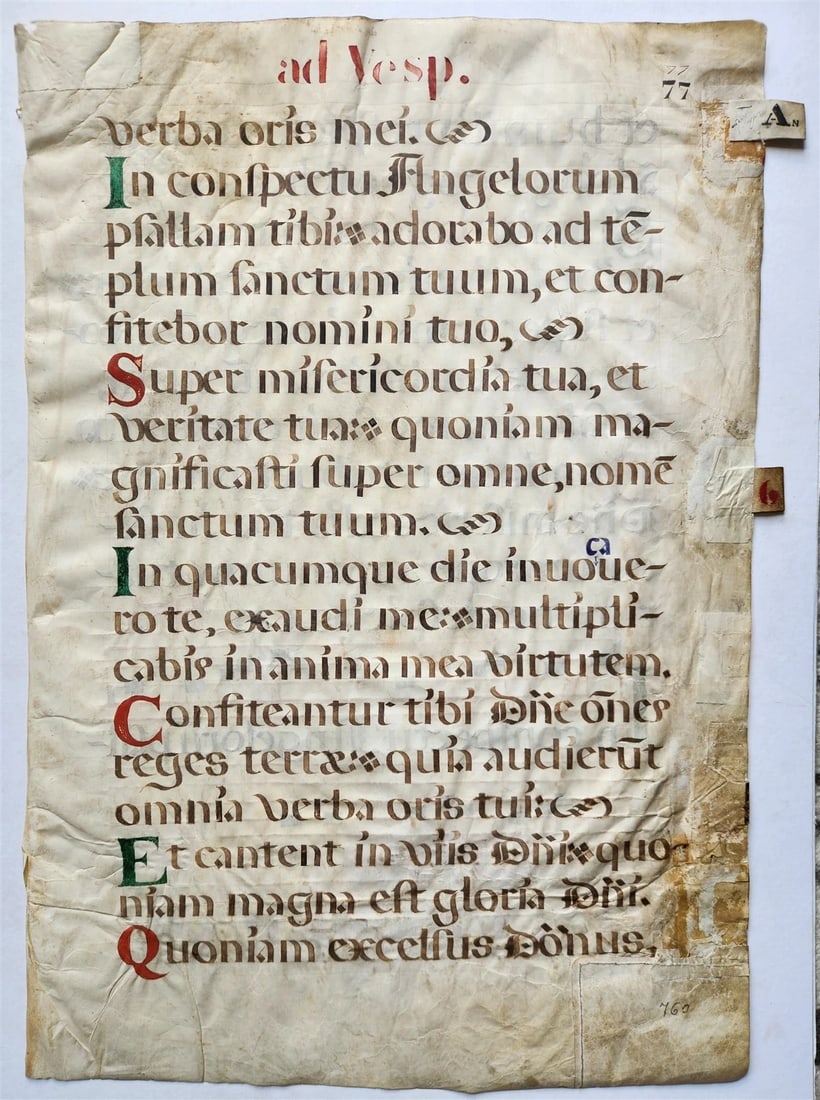 ad Vesp.
77
77
An
verba oris mei.
In conſpectu Angelorum
pſallam tibi: adorabo ad tē-
plum ſanctum tuum, et con-
fitebor nomini tuo,
Super miſericordia tua, et
veritate tua: quoniam ma-
gnificaſti ſuper omne, nomē
ſanctum tuum.
6
ca
In quacumque die inuoue-
ro te, exaudi me: multipli-
cabis in anima mea virtutem.
Confiteantur tibi Dn̄e om̄es
reges terræ: quia audierūt
omnia verba oris tui:
Et cantent in viis Dn̄i: quo-
niam magna eſt gloria Dn̄i.
Quoniam excelſus Dōnus,
760